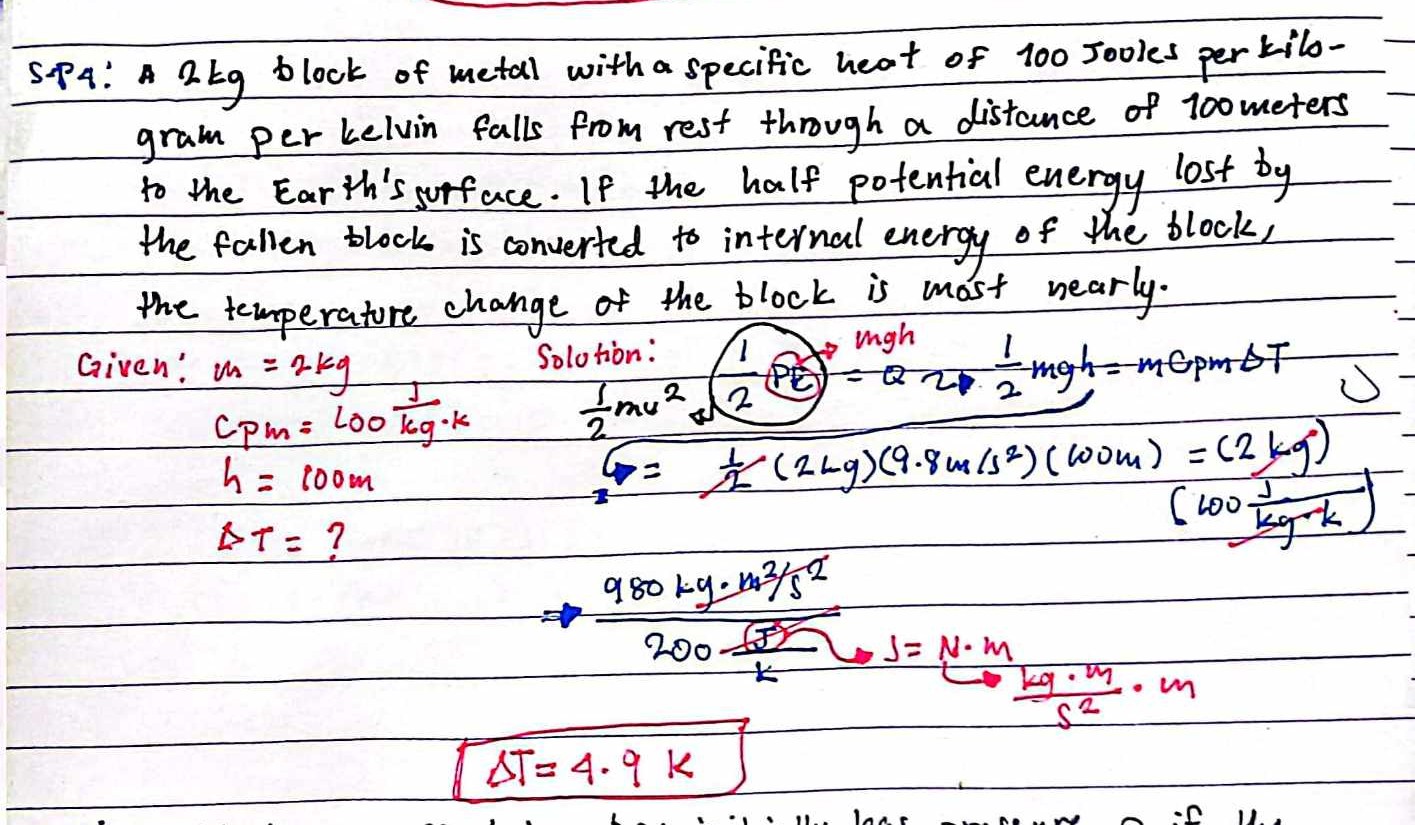 S.P4: A 2kg block of metal with a specific heat of 100 Joules per kilo-
gram per kelvin falls from rest through a distance of 100 meters
to the Earth's surface. If the half potential energy lost by
the fallen block is converted to internal energy of the block,
the temperature change of the block is most nearly.
Given: m = 2kg
Cpm = 100 J/kg·K
h = 100m
ΔT = ?
Solution:
1/2 mv² 1/2 PE → mgh = Q → 1/2 mgh = mCpmΔT
= 1/2 (2kg)(9.8m/s²)(100m) = (2 kg)
(100 J/kg·K)
⇒ 980 kg·m²/s² / 200 J/K
J = N·m
kg·m/s² · m
ΔT = 4.9 K